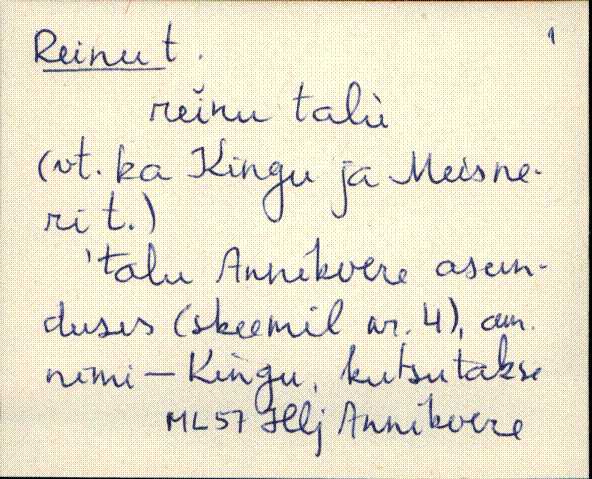 Reinu t. 1
reinu talu
(vt. ka Kingu ja Meisne-
ri t.)
'talu Annikvere asun-
duses (skeemil nr. 4), am.
nimi – Kingu, kutsutakse
ML 57 Hlj Annikvere